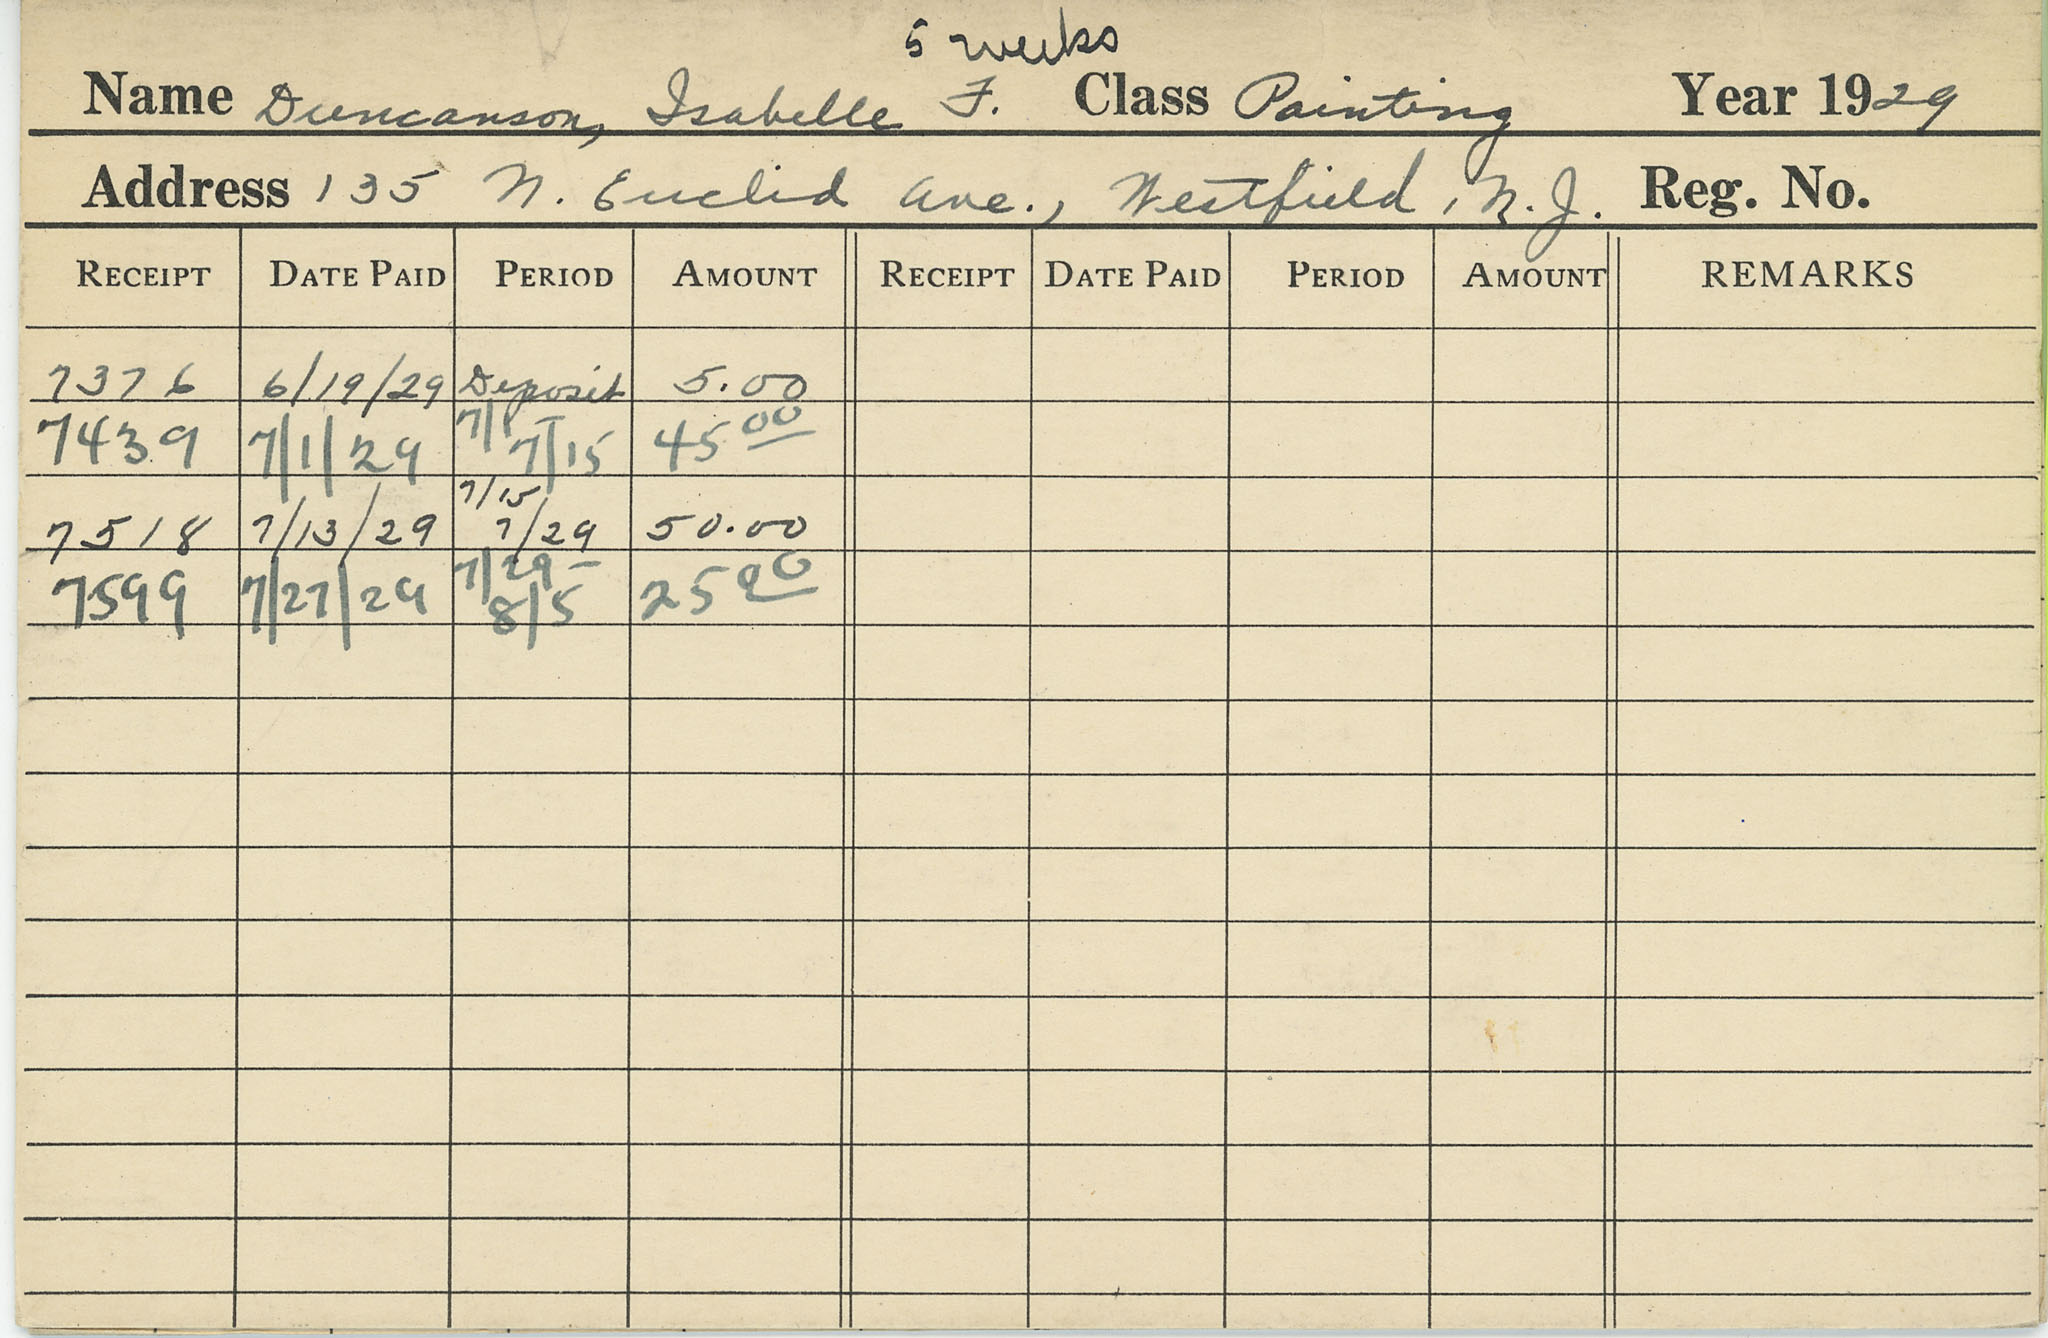 5 weeks
Name Duncanson, Isabelle F. Class Painting Year 1929
Address 135 N. Euclid Ave., Westfield, N.J. Reg. No.
RECEIPT DATE PAID PERIOD AMOUNT RECEIPT DATE PAID PERIOD AMOUNT REMARKS
7376 6/19/29 Deposit 5.00
7439 7/1/29 7/1- 7/15 45 00
7518 7/13/29 7/15 7/29 50.00
7599 7/27/29 7/29- 8/5 25 00